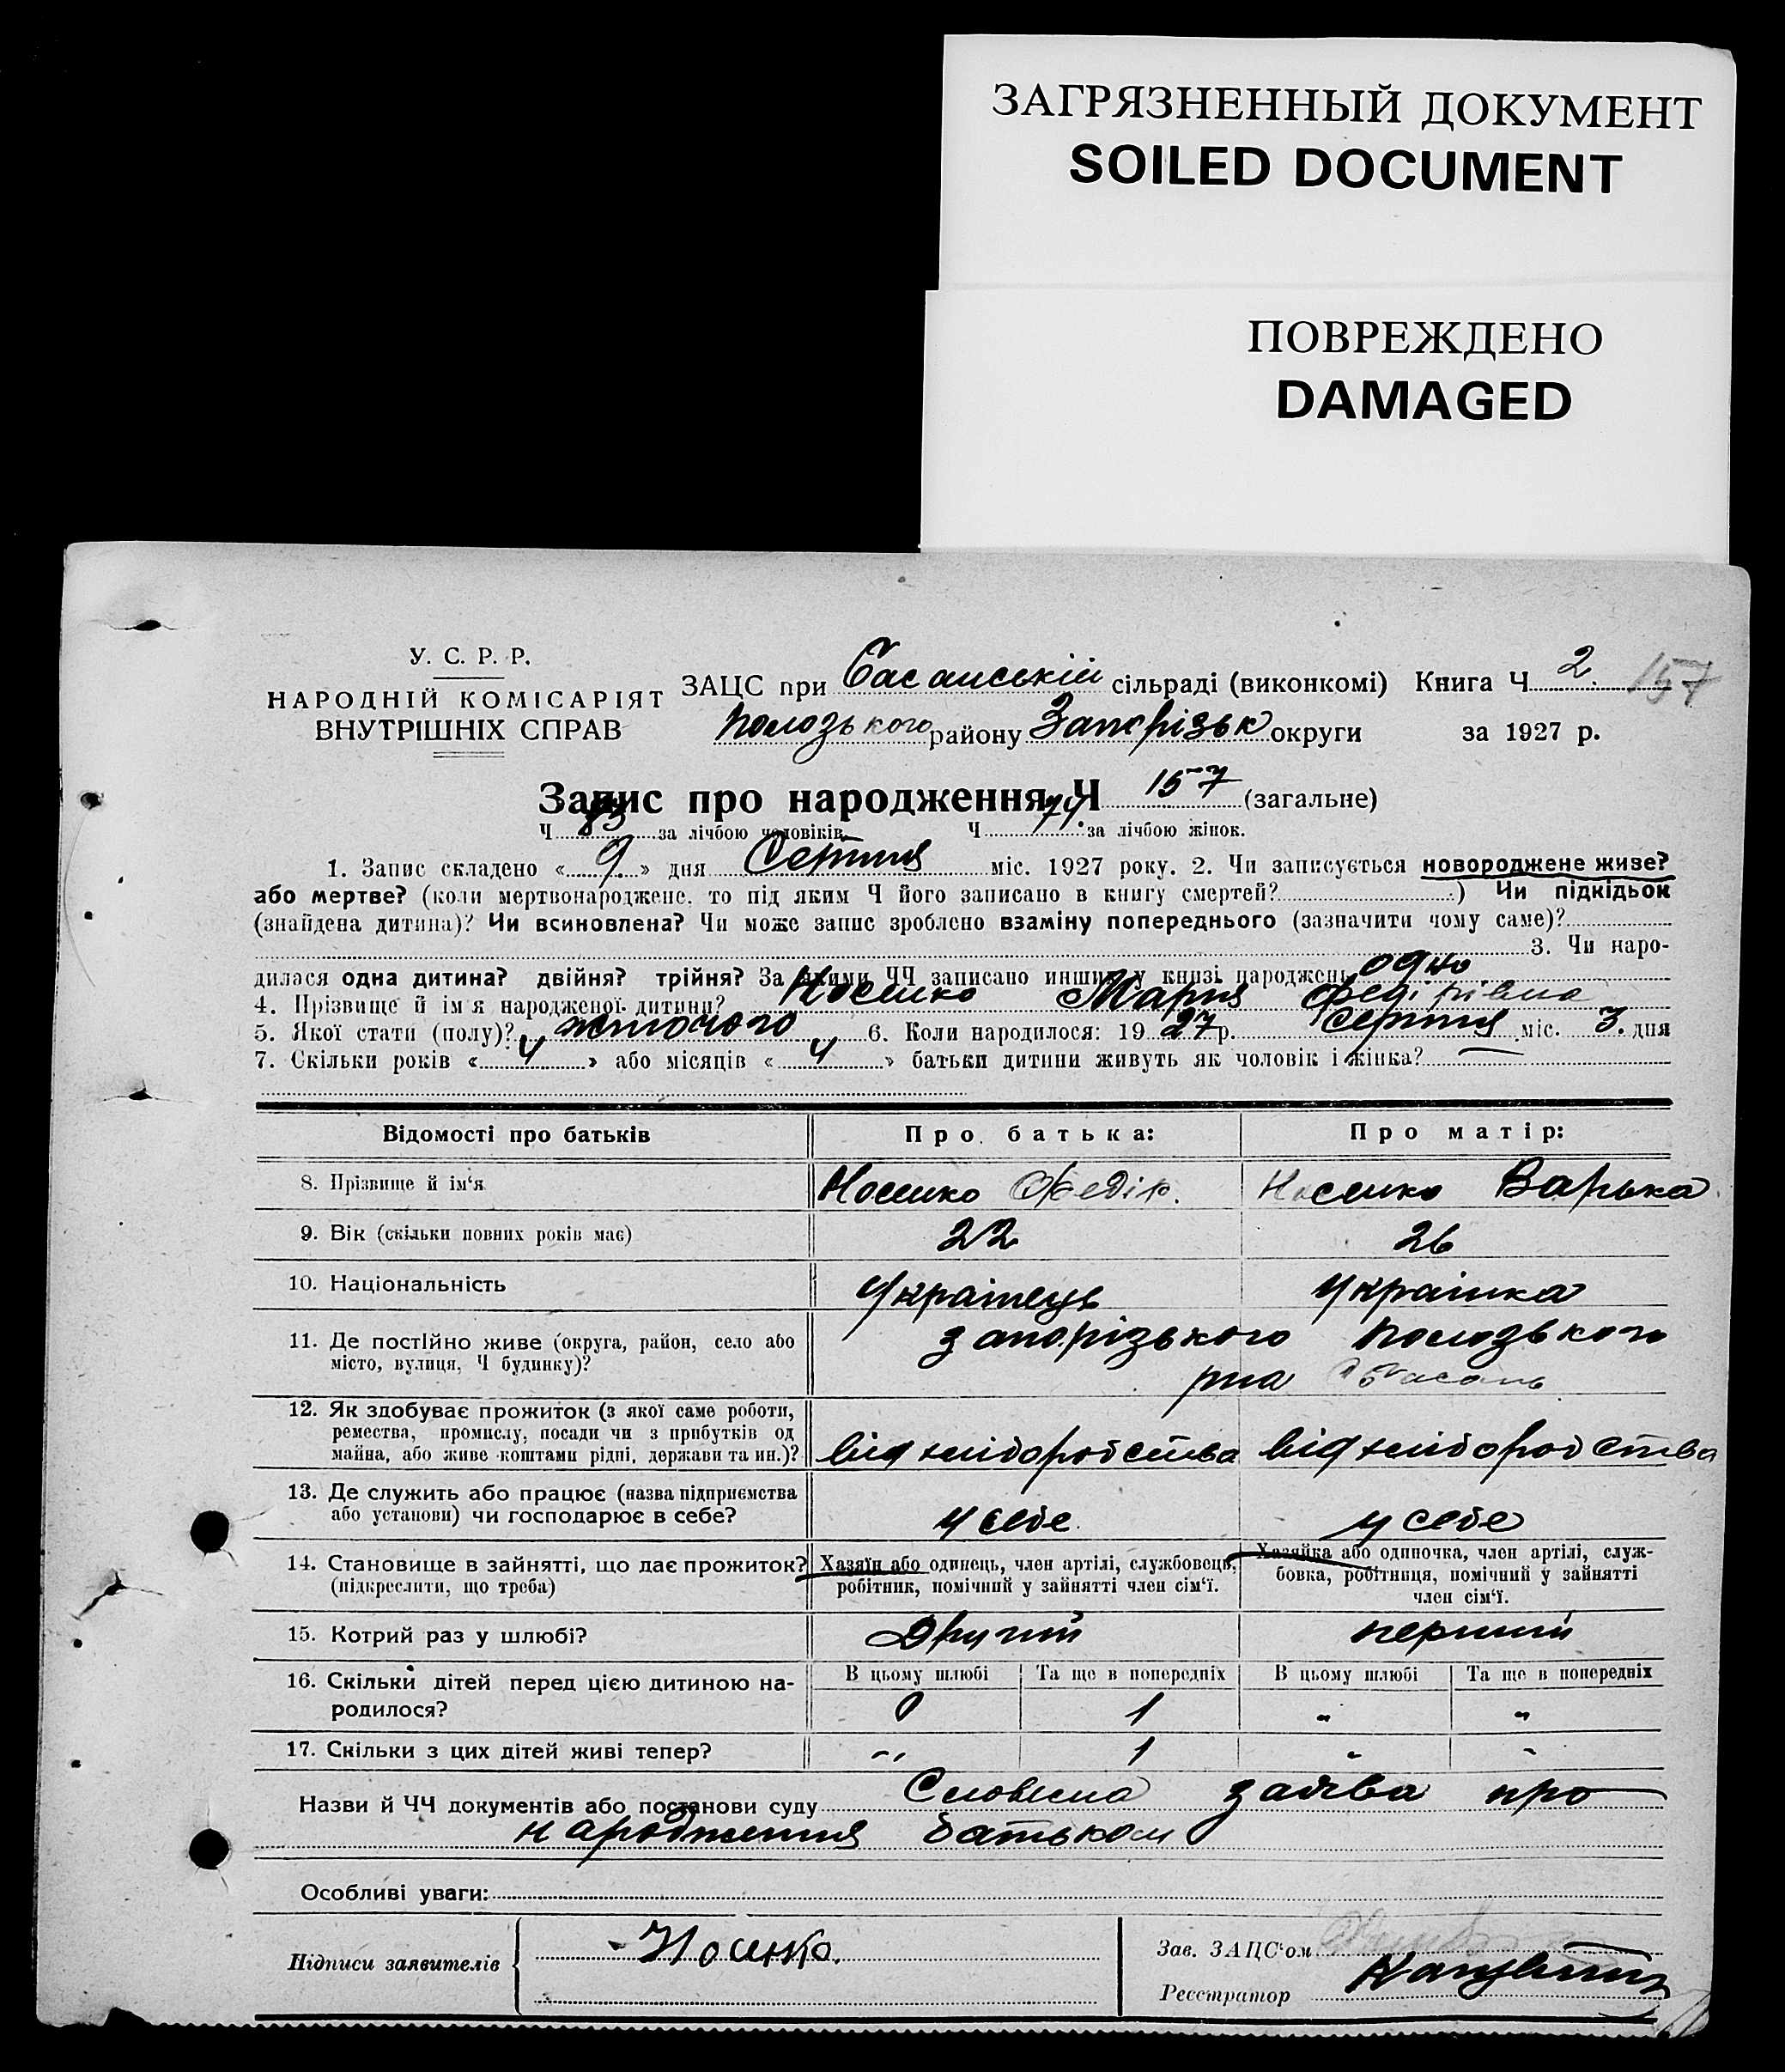 ЗАГРЯЗНЕННЫЙ ДОКУМЕНТ
SOILED DOCUMENT
ПОВРЕЖДЕНО
DAMAGED
У. С. Р. Р.
НАРОДНІЙ КОМІСАРІЯТ
ВНУТРІШНІХ СПРАВ
ЗАЦС при Басанській сільраді (виконкомі) Книга Ч 2. 157
Полозького району Запорізьк округи за 1927 р.
Запис про народження Ч 157 (загальне)
Ч 83 за лічбою чоловіків. Ч 74. за лічбою жінок.
1. Запис складено « 9 » дня Серпня міс. 1927 року. 2. Чи записується новороджене живе?
або мертве? (коли мертвонароджене, то під яким Ч його записано в книгу смертей? ) Чи підкідьок
(знайдена дитина)? Чи всиновлена? Чи може запис зроблено взаміну попереднього (зазначити чому саме)?
3. Чи наро-
дилася одна дитина? двійня? трійня? За якими ЧЧ записано инших у книзі народжень одно
4. Прізвище й ім'я народженої дитини? Носенко Марія Федірівна
5. Якої стати (полу)? жіночого 6. Коли народилося: 1927 р. Серпня міс. 3. дня
7. Скільки років « 4 » або місяців « 4 » батьки дитини живуть як чоловік і жінка? —
Відомості про батьків Про батька: Про матір:
8. Прізвище й ім'я Носенко Федір. Носенко Варька
9. Вік (скільки повних років має) 22 26
10. Національність Українець Українка
11. Де постійно живе (округа, район, село або Запорізького Полозького
місто, вулиця, Ч будинку)? рна с Басань
12. Як здобуває прожиток (з якої саме роботи,
ремества, промислу, посади чи з прибутків од
майна, або живе коштами рідні, держави та ин.)? від хліборобства від хліборобства
13. Де служить або працює (назва підприємства
або установи) чи господарює в себе? у себе у себе
14. Становище в зайнятті, що дає прожиток? Хазяїн або одинець, член артілі, службовець, Хазяйка або одиночка, член артілі, служ-
(підкреслити, що треба) робітник, помічний у зайнятті член сім'ї. бовка, робітниця, помічний у зайнятті
член сім'ї.
15. Котрий раз у шлюбі? Другий перший
16. Скільки дітей перед цією дитиною на- В цьому шлюбі Та ще в попередніх В цьому шлюбі Та ще в попередніх
родилося? 0 1 " "
17. Скільки з цих дітей живі тепер? " 1 " "
Назви й ЧЧ документів або постанови суду Словесна заява про
народження батьком
Особливі уваги:
Підписи заявителів Носенко. Зав. ЗАЦС'ом
Реєстратор